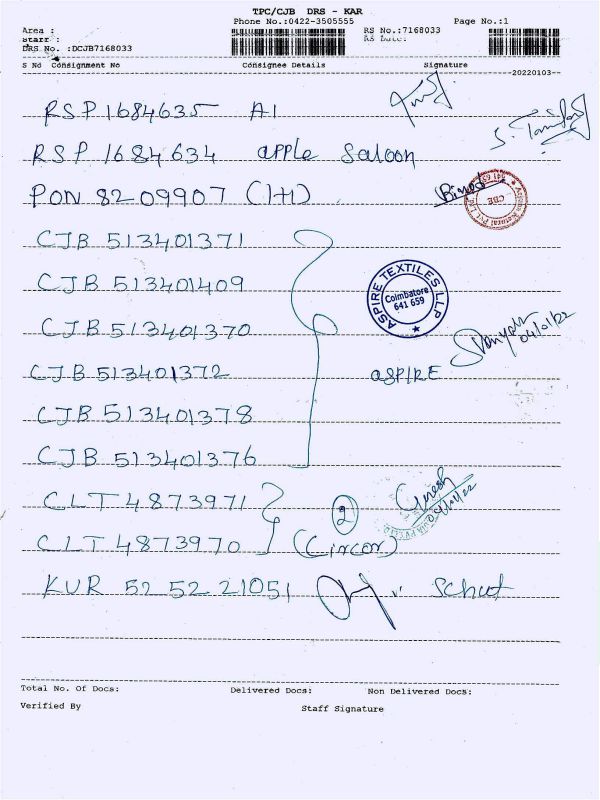 TPC/CJB DRS - KAR
Phone No.:0422-3505555
Page No.:1
Area :
Staff :
DRS No. :DCJB7168033
RS No.:7168033
RS Date:
S No Consignment No Consignee Details Signature
--20220103--
RSP 1684635 A1
RSP 1684634 apple Saloon
PON 8209907 (1+1)
Binod
CBE
CJB 513401371
CJB 513401409
ASPIRE TEXTILES LLP
Coimbatore
641 659
CJB 513401370
04/01/22
CJB 513401372 ASPIRE
CJB 513401378
CJB 513401376
CLT 4873971
2
Giresh
04/01/22
CLT 4873970 (Circor)
KUR 52 52 21051
Total No. Of Docs: Delivered Docs: Non Delivered Docs:
Verified By Staff Signature